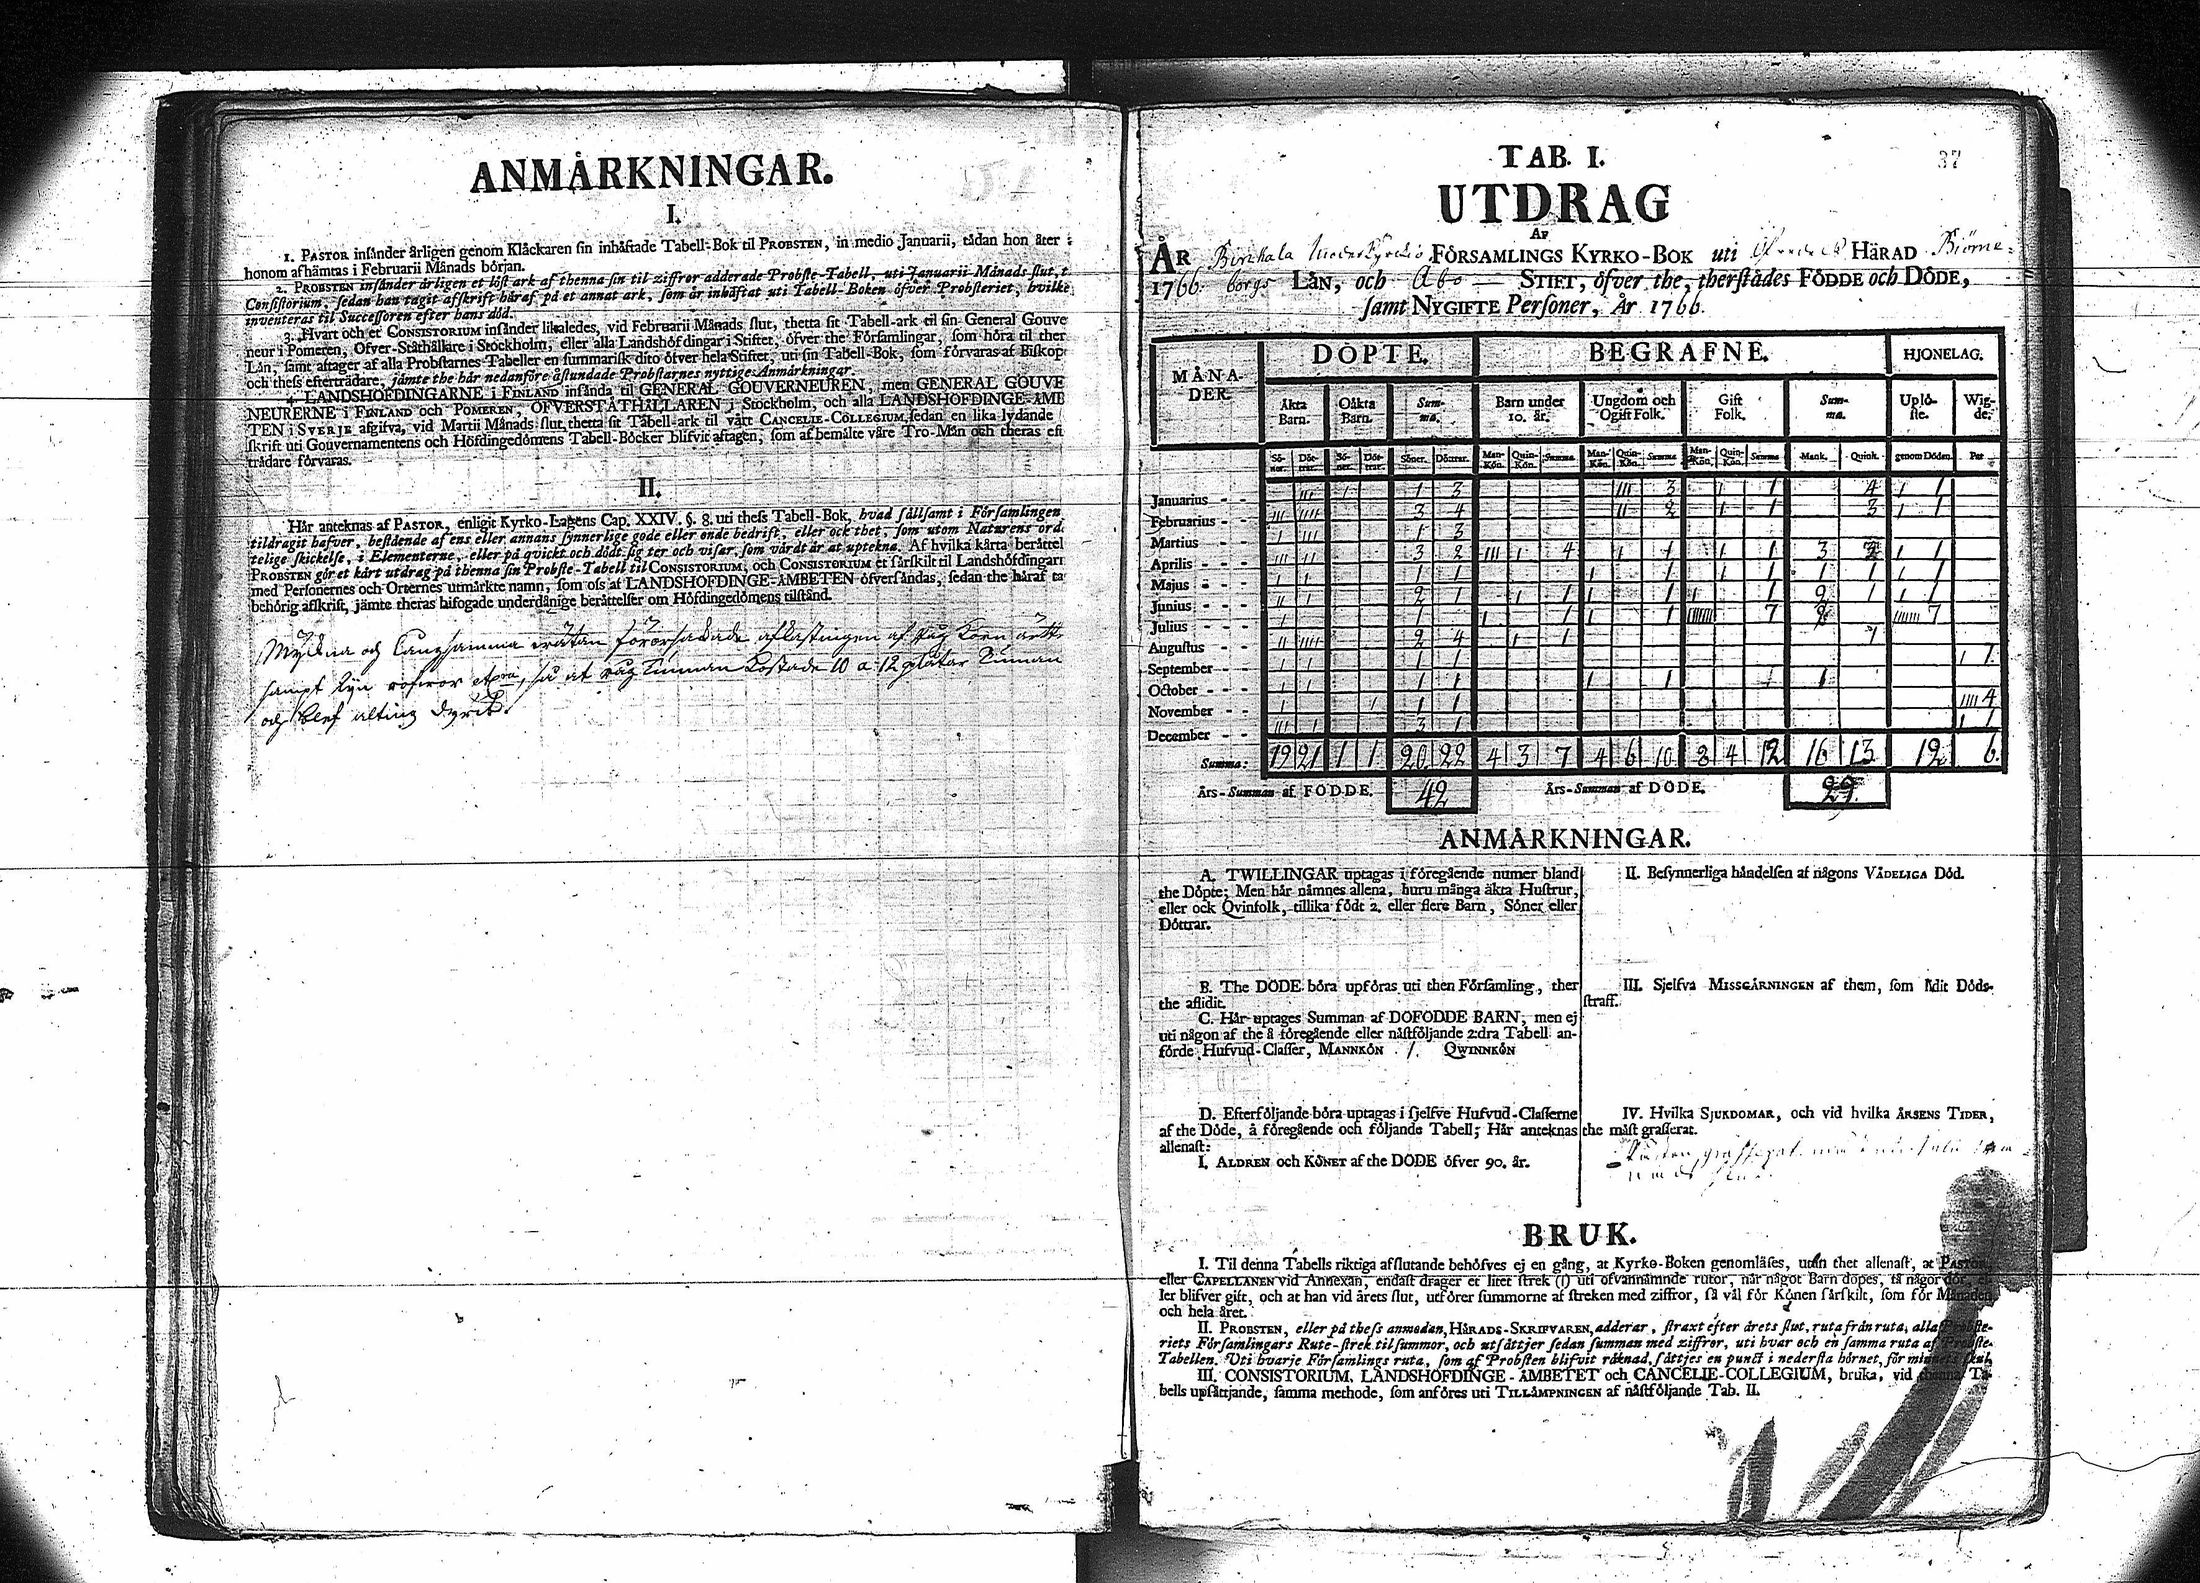 ANMÅRKNINGAR.
I.
1. PASTOR insånder årligen genom Klåckaren sin inhåftade Tabell-Bok til PROBSTEN, in medio Januarii, tådan hon åter
honom afhåmtas i Februarii Månads början.
2. PROBSTEN insånder årligen et löst ark af thenna sin til ziffror adderade Probste-Tabell, uti Januarii Månads slut, t
Consistorium, sedan han tagit afskrift håraf på et annat ark, som år inhåftat uti Tabell-Boken öfver Probsteriet, hvilke
inventeras til Successoren efter hans död.
3. Hvart och et CONSISTORIUM insånder likaledes, vid Februarii Månads slut, thetta sit Tabell-ark til sin General Gouve
neur i Pomeren, Öfver-Ståthållare i Stockholm, eller alla Landshöfdingar i Stiftet, öfver the Församlingar, som höra til ther
Lån, samt aftager af alla Probstarnes Tabeller en summarisk dito öfver hela Stiftet, uti sin Tabell-Bok, som förvaras af Biskop
och thess eftertrådare, jåmte the hår nedanföre åstundade Probstarnes nyttige Anmårkningar.
4. LANDSHÖFDINGARNE i FINLAND insånda til GENERAL GOUVERNEUREN, men GENERAL GOUVE
NEURERNE i FINLAND och POMEREN, ÖFVERSTÅTHÅLLAREN i Stockholm, och alla LANDSHÖFDINGE-ÅMB
TEN i SVERJE afgifva, vid Martii Månads slut, thetta sit Tabell-ark til vårt CANCELIE-COLLEGIUM, sedan en lika lydande
skrift uti Gouvernamentens och Höfdingedömens Tabell-Böcker blifvit aftagen, som af bemålte våre Tro-Mån och theras eft
trådare förvaras.
II.
Hår anteknas af PASTOR, enligit Kyrko-Lagens Cap. XXIV. §. 8. uti thess Tabell-Bok, hvad sållsamt i Församlingen
tildragit hafver, bestående af ens eller annans synnerlige gode eller onde bedrift, eller ock thet, som utom Naturens ord
telige skickelse, i Elementerne, eller på qvickt och dödt sig ter och visar, som vårdt år at uptekna. Af hvilka kårta beråttel
PROBSTEN gör et kårt utdrag på thenna sin Probste-Tabell til CONSISTORIUM; och CONSISTORIUM et sårskilt til Landshöfdingarı
med Personernes och Orternes utmårkte namn, som oss af LANDSHÖFDINGE-ÅMBETEN öfversåndas, sedan the håraf ta
behörig afskrift, jåmte theras bifogade underdånige beråttelser om Höfdingedömens tilstånd.
och blef alting dyrt.
TAB. I.
37
UTDRAG
AF
ÅR Birckala Moderkyrckio FÖRSAMLINGS KYRKO-BOK uti HÄRAD Biörne-
1766. borgs LÅN, och Åbo STIFT, öfver the, therstådes FÖDDE och DÖDE,
samt NYGIFTE Personer, År 1766.
DÖPTE. BEGRAFNE. HJONELAG.
MÅNADER. Åkta Barn. Oåkta Barn. Summa. Barn under 10. år. Ungdom och Ogift Folk. Gift Folk. Summa. Uplöste. Wigde.
Söner. Döttrar. Söner. Döttrar. Söner. Döttrar. Man-Kön. Quin-Kön. Summa Man-Kön. Quin-Kön. Summa Man-Kön. Quin-Kön. Summa Mank. Quink. genom Döden. Par
Januarius - - ııı ı 1 3 ııı 3 ı 1 4 ı 1
Februarius - - ııı ıııı 3 4 ıı 2 ı 1 3 ı 1
Martius - - ı ııı 1 3
Aprilis - - - ııı ıı 3 2 ııı ı 4 ı 1 ı 1 3 2 ı 1
Majus - - - ı ı 1 1 ı 1 ı 1 1 1 ı 1
Junius - - - ıı ı 2 1 ı 1 ı 1 ı 1 2 1 ı 1
Julius - - - ı 1 ı 1 ı 1 ııııııı 7 ııııııı 7
Augustus - - ıı ıııı 2 4 ı 1 1
September - - ı ı 1 1 ı 1
October - - - ı ı 1 1 ı 1 1
November - - ı ı 1 1 ıııı 4
December - - ııı ı 3 1 ı 1
Summa: 19 21 1 1 20 22 4 3 7 4 6 10 8 4 12 16 13 12 6.
Års-Summan af FÖDDE. 42 Års-Summan af DÖDE. 29.
ANMÅRKNINGAR.
A. TWILLINGAR uptagas i föregående numer bland
the Döpte; Men hår nåmnes allena, huru många åkta Hustrur,
eller ock Qvinfolk, tillika födt 2. eller flere Barn, Söner eller
Döttrar.
B. The DÖDE böra upföras uti then Församling, ther
the aflidit.
C. Hår uptages Summan af DÖDFÖDDE BARN; men ej
uti någon af the å föregående eller nåstföljande 2:dra Tabell an-
förde Hufvud-Classer, MANNKÖN . /. QWINNKÖN
D. Efterföljande böra uptagas i sjelfve Hufvud-Classerne
af the Döde, å föregående och följande Tabell; Hår anteknas
allenast:
I. ALDREN och KÖNET af the DÖDE öfver 90. år.
II. Besynnerliga håndelsen af någons VÅDELIGA Död.
III. Sjelfva MISSGÅRNINGEN af them, som lidit Döds-
straff.
IV. Hvilka SJUKDOMAR, och vid hvilka ÅRSENS TIDER,
the måst grasserat.
BRUK.
I. Til denna Tabells riktiga afslutande behöfves ej en gång, at Kyrko-Boken genomläses, utan thet allenast, at PASTOR,
eller CAPELLANEN vid Annexan, endast drager et litet strek (ı) uti ofvannåmnde rutor, når något Barn döpes, tå någor dör, el-
ler blifver gift, och at han vid årets slut, utförer summorne af streken med ziffror, så vål för Könen sårskilt, som för Månaden
och hela året.
II. PROBSTEN, eller på thess anmodan, HÅRADS-SKRIFVAREN, adderar, straxt efter årets slut, ruta från ruta, alla Probste-
riets Församlingars Rute-strek til summor, och utsåttjer sedan summan med ziffror, uti hvar och en samma ruta af Probste-
Tabellen. Uti hvarje Församlings ruta, som af Probsten blifvit råknad, såttjes en punct i nedersta hörnet, för minnets skul.
III. CONSISTORIUM, LANDSHÖFDINGE-ÅMBETET och CANCELIE-COLLEGIUM, bruka, vid thenna Ta-
bells upsåttjande, samma methode, som anföres uti TILLÅMPNINGEN af nåstföljande Tab. II.